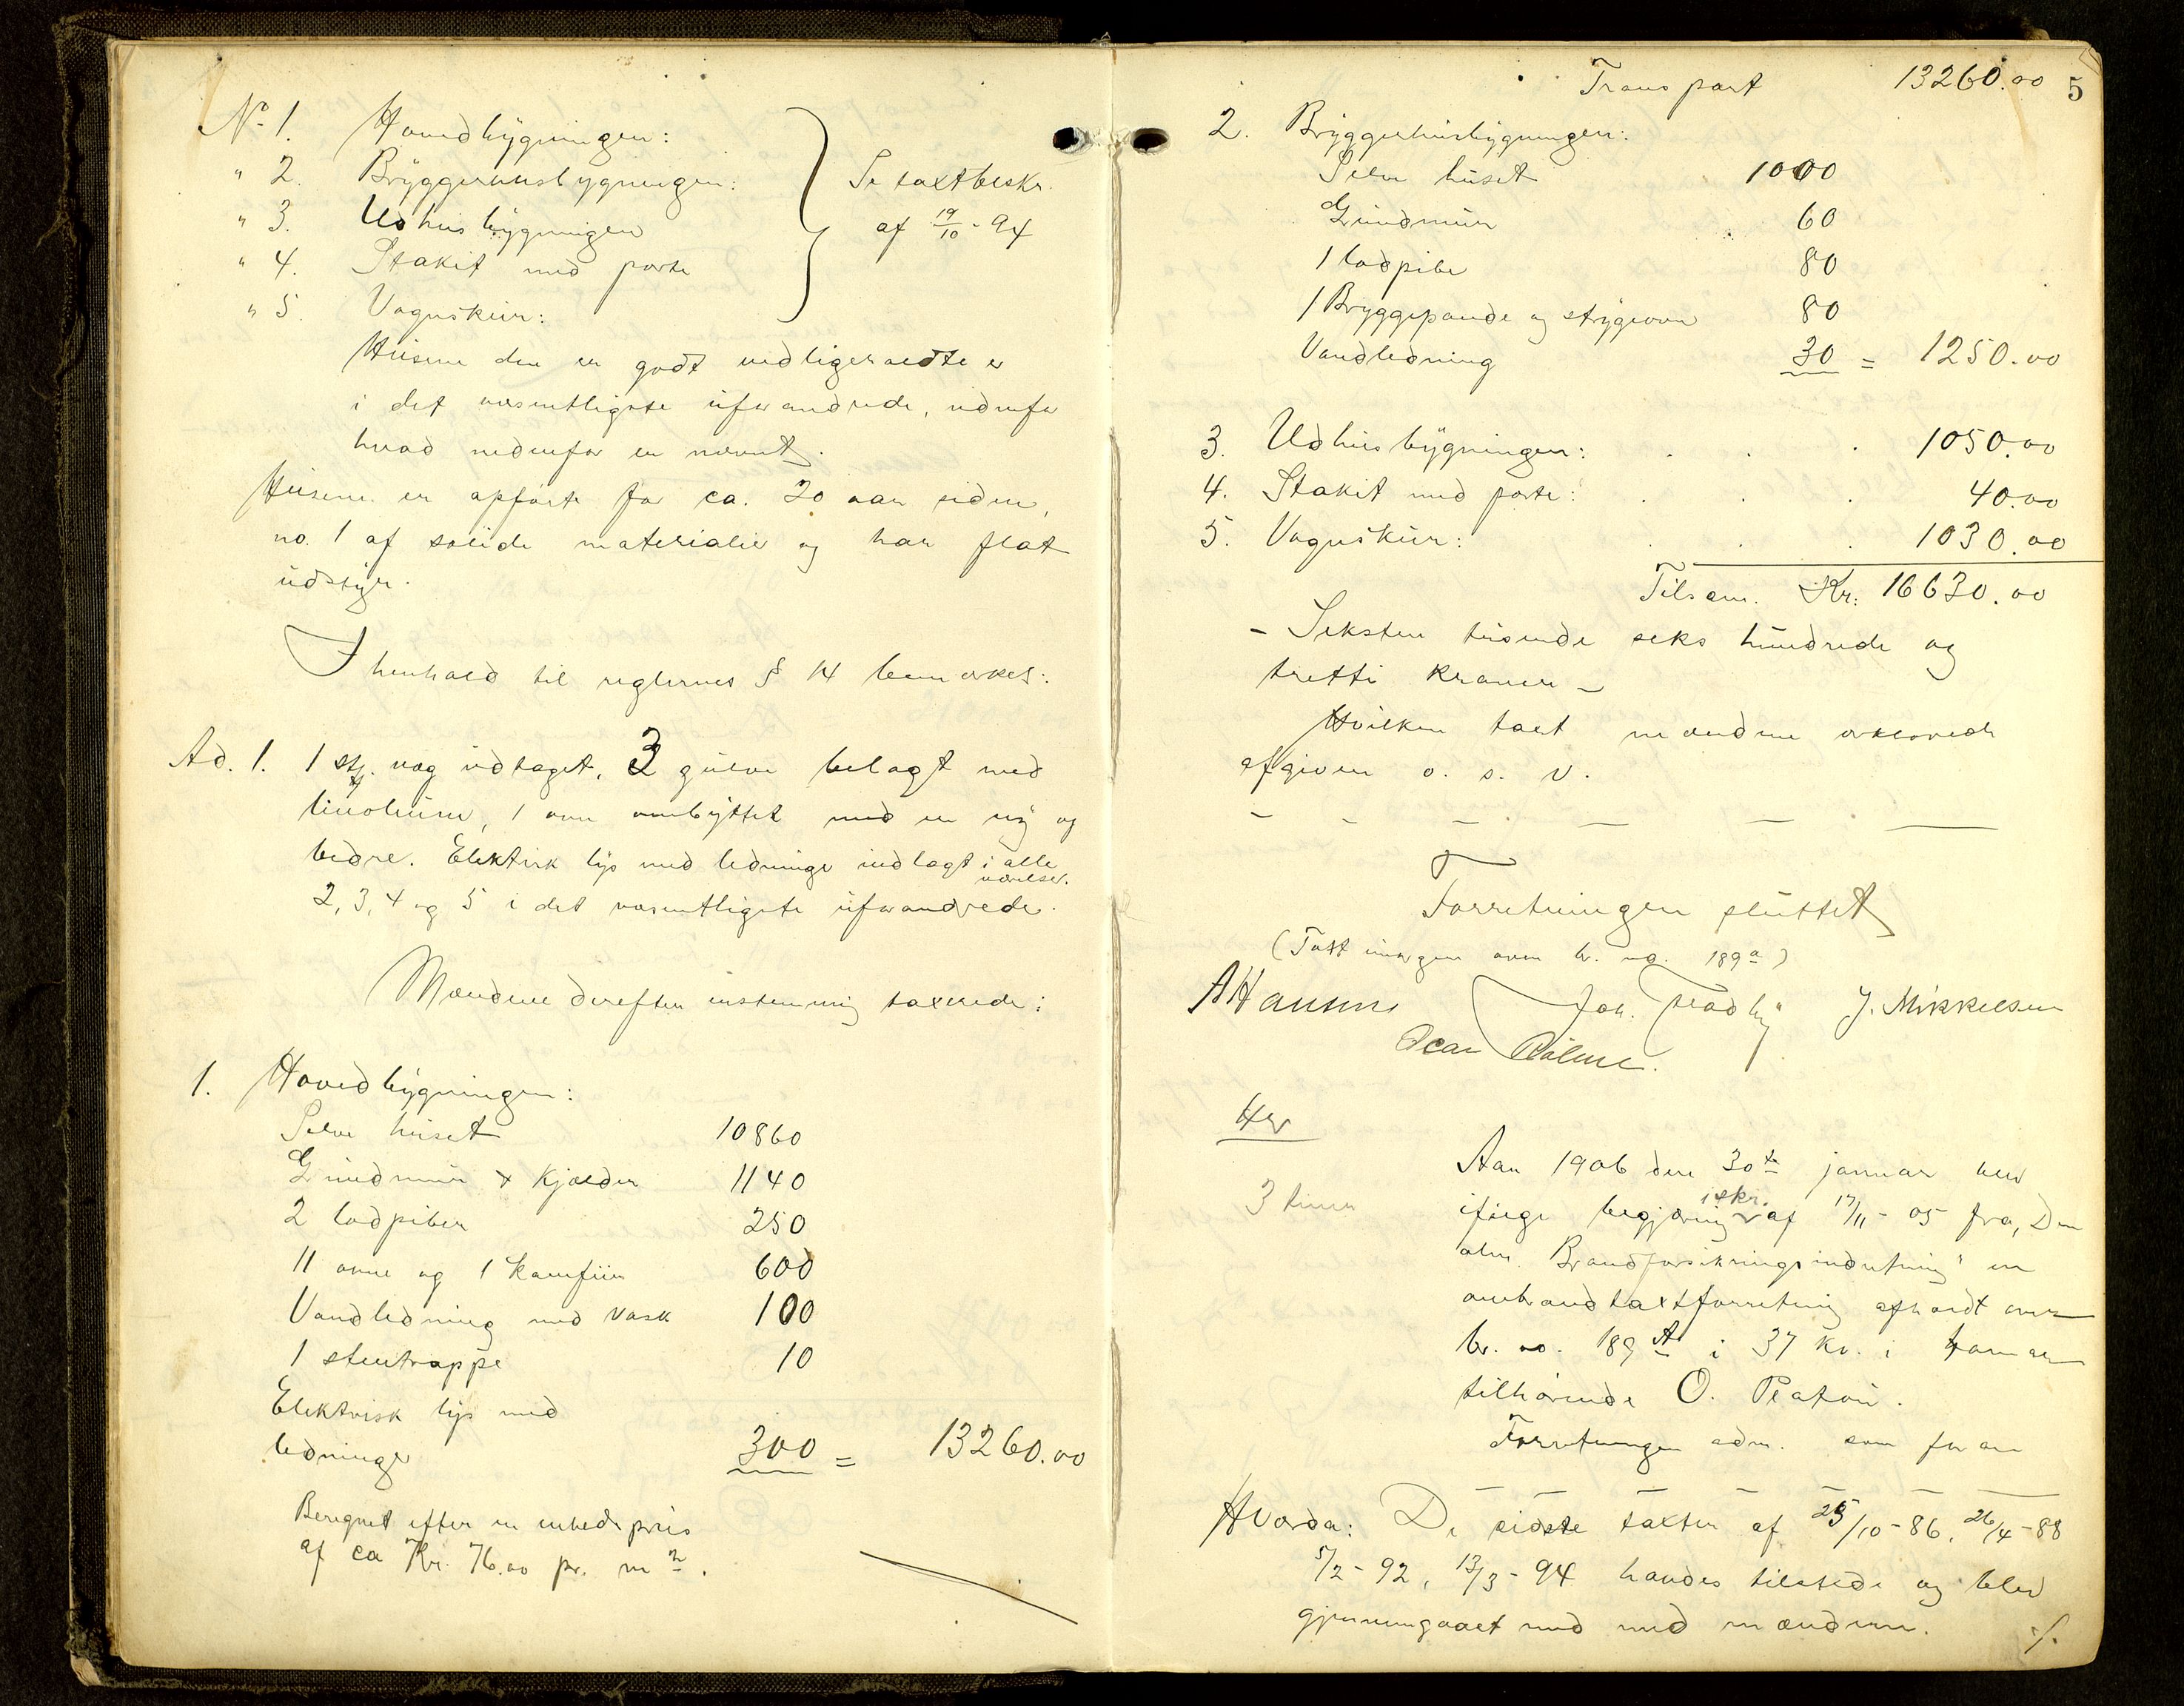 No 1. Hovedbygningen:
" 2. Bryggerhusbygningen:
" 3. Udhusbygningen
" 4. Stakit med porte
" 5. Vognskur:
Se taxtbeskr.
af 19/10 - 94
Husene der er godt vedligeholdte er
i det væsentligste uforandrede, undtagen
hvad nedenfor er nævnt.
Husene er opførte for ca. 20 aar siden,
no. 1 af solide materialier og har flot
udstyr.
I henhold til reglernes § 14 bemerkes:
Ad. 1. 1 stk. væg udtaget, 3 gulve belagt med
linoleum, 1 ovn ombyttet med en ny og
bedre. Elektrisk lys med ledninger indlagt i alle
værelser.
2, 3, 4 og 5 i det væsentligste uforandrede.
Mændene derefter enstemmig taxerede:
1. Hovedbygningen:
Selve huset 10860
Grundmur & Kjælder 1140
2 lodpiber 250
11 ovne og 1 Komfur 600
Vandledning med vask 100
1 stentrappe 10
Elektrisk lys med
ledninger 300 = 13260.00
Beregnet efter en enhedspris
af ca Kr. 76.00 pr. m2.
Transport 13260.00 5
2. Bryggerhusbygningen:
Selve huset 1000
Grundmur 60
1 lodpibe 80
1 Bryggepande og strygeovn 80
Vandledning 30 = 1250.00
3. Udhusbygningen: . . . 1050.00
4. Stakit med porte: . . . 40.00
5. Vognskur: . . . 1030.00
Tilsam. Kr: 16630.00
- Seksten tusende seks hundrede og
tretti Kroner -
Hvilken taxt mændene erklærede
afgiven o. s. v.
Forretningen sluttet
(Taxt over br. no. 189 a)
A Hansen Joh. J. Mikkelsen
Oscar
3 timer
Aar 1906 den 30te januar blev
ifølge begjæring i skr. af 17/11 - 05 fra "Den
alm. Brandforsikringsindretning" en
ombrandtaxtforretning afholdt over
br. no. 189 A i 37 Kv. i Hamar
tilhørende O. Platou.
Forretningen adm. som foran
Hvorda: De sidste taxter af 25/10 - 86, 26/4 - 88
5/2 - 92, 13/3 - 94 havdes tilstede og blev
gjennemgaaet med mændene.
./.